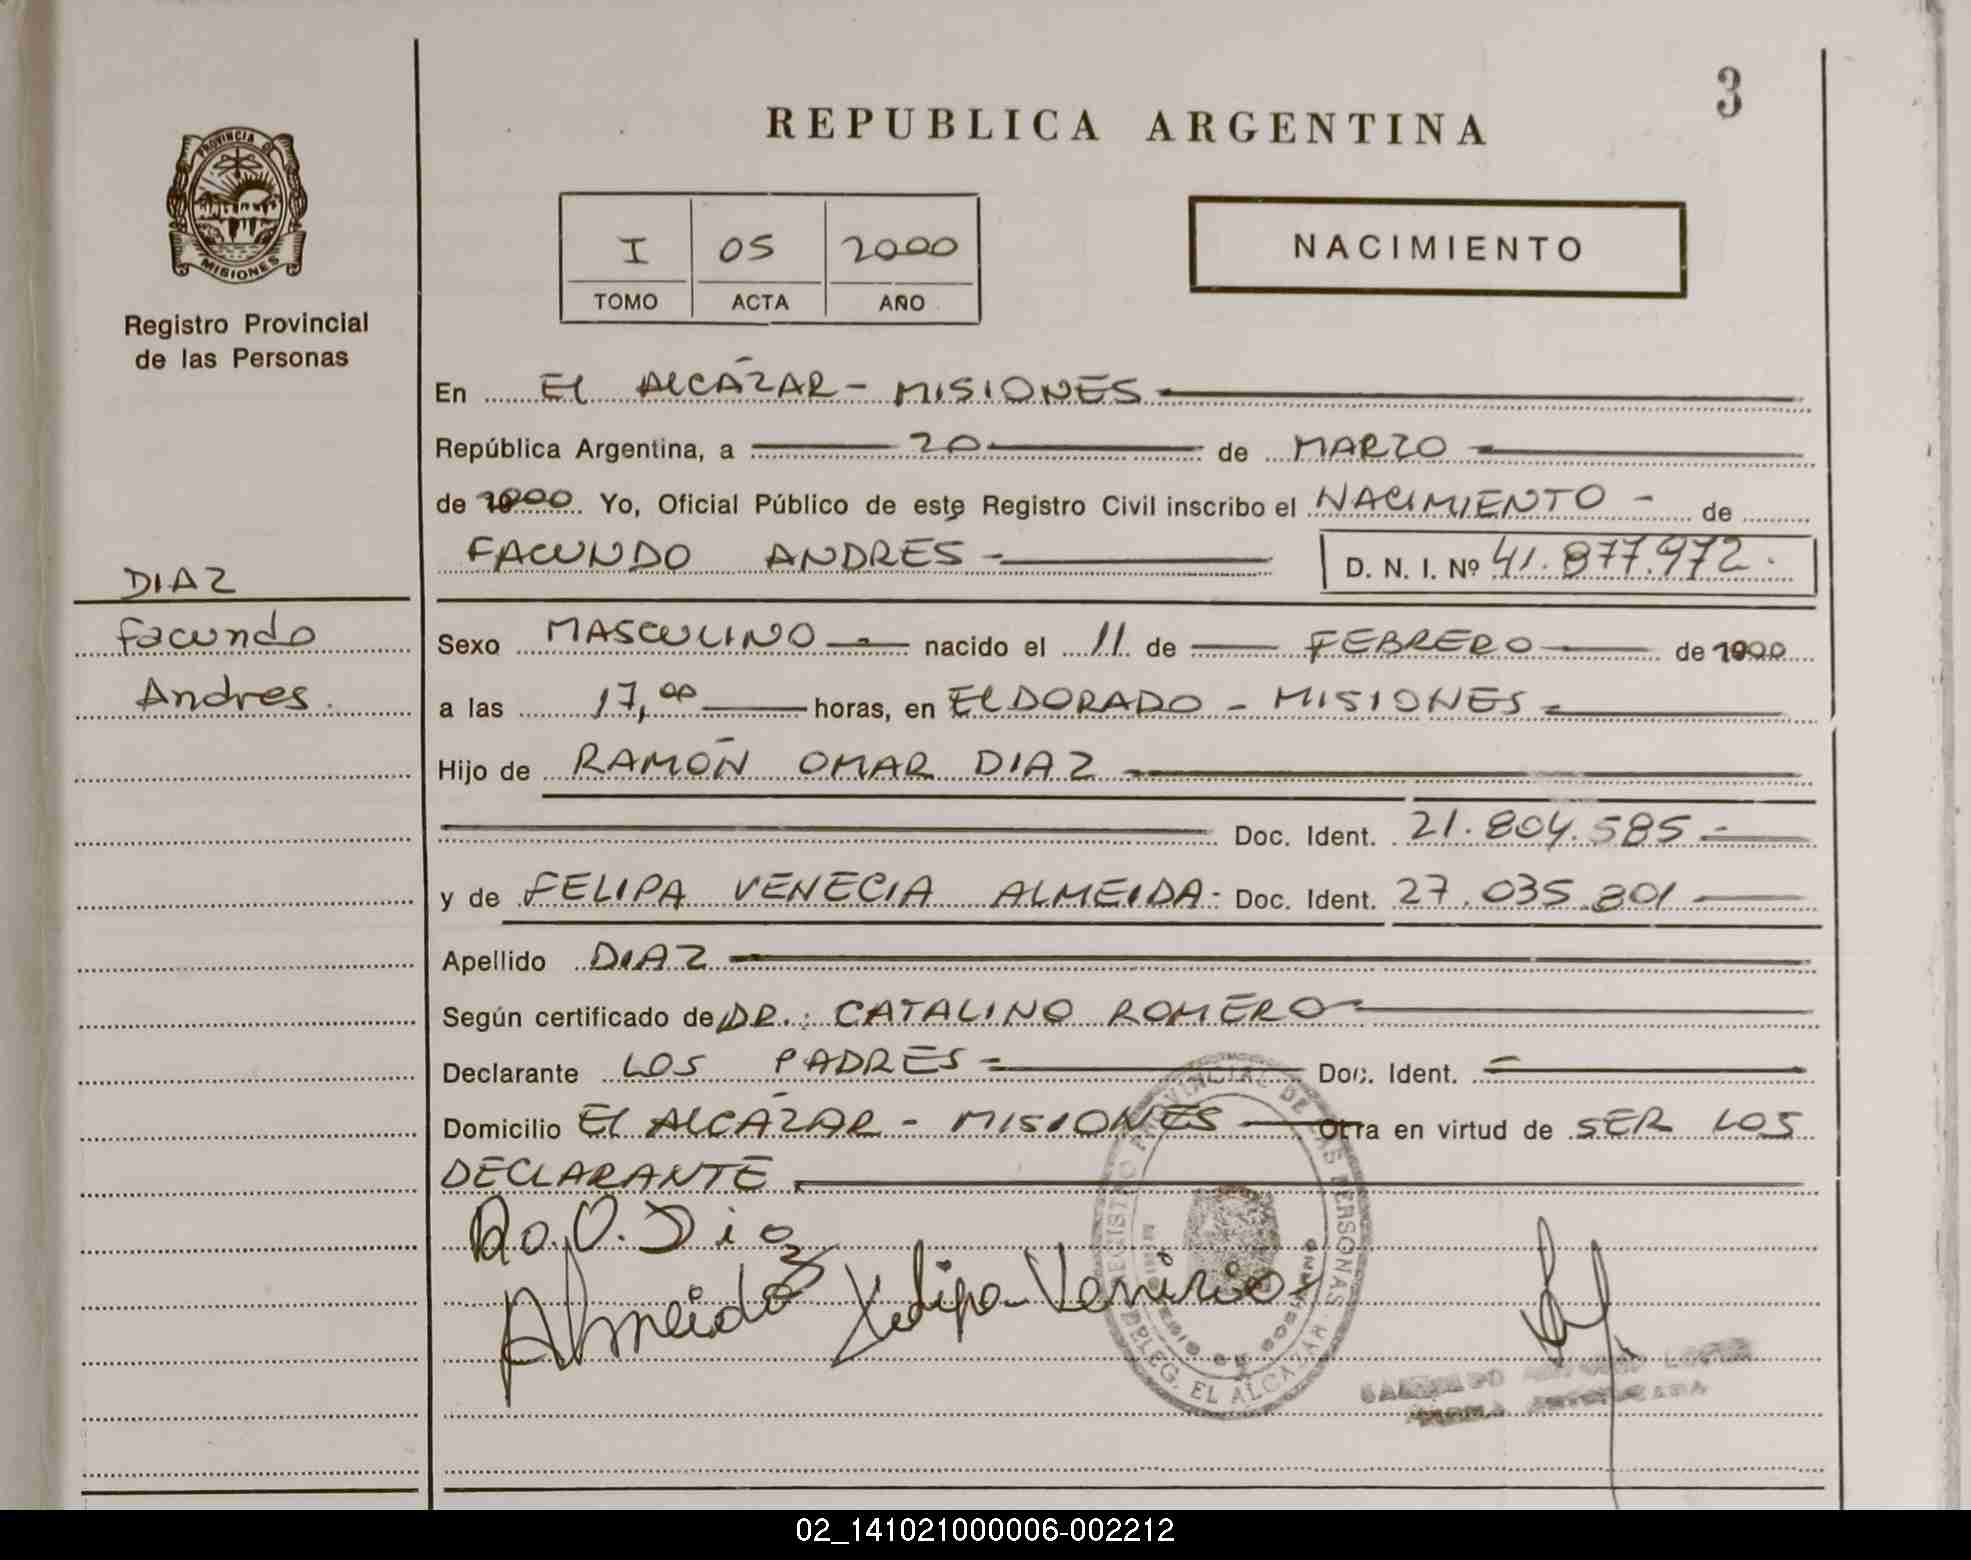 3
REPUBLICA ARGENTINA
PROVINCIA DE
MISIONES
Registro Provincial
de las Personas
I 05 2000
TOMO ACTA AÑO
NACIMIENTO
En El ALCÁZAR - MISIONES
República Argentina, a 20 de MARZO
de 2000 Yo, Oficial Público de este Registro Civil inscribo el NACIMIENTO - de
FACUNDO ANDRES - D. N. I. Nº 41.877.972.
DIAZ
Facundo
Andres.
Sexo MASCULINO nacido el 11 de FEBRERO de 2000
a las 17,00 horas, en ElDORADO - MISIONES
Hijo de RAMÓN OMAR DIAZ
Doc. Ident. 21.804.585
y de FELIPA VENECIA ALMEIDA- Doc. Ident. 27.035.801
Apellido DIAZ
Según certificado de DR.: CATALINO ROMERO
Declarante LOS PADRES Doc. Ident.
Domicilio El ALCÁZAR - MISIONES Otra en virtud de SER LOS
DECLARANTE
Ro. O. Diaz
Almeida Felipa Venecia
REGISTRO PROVINCIAL DE LAS PERSONAS
DELEG. EL ALCAZAR
02_141021000006-002212